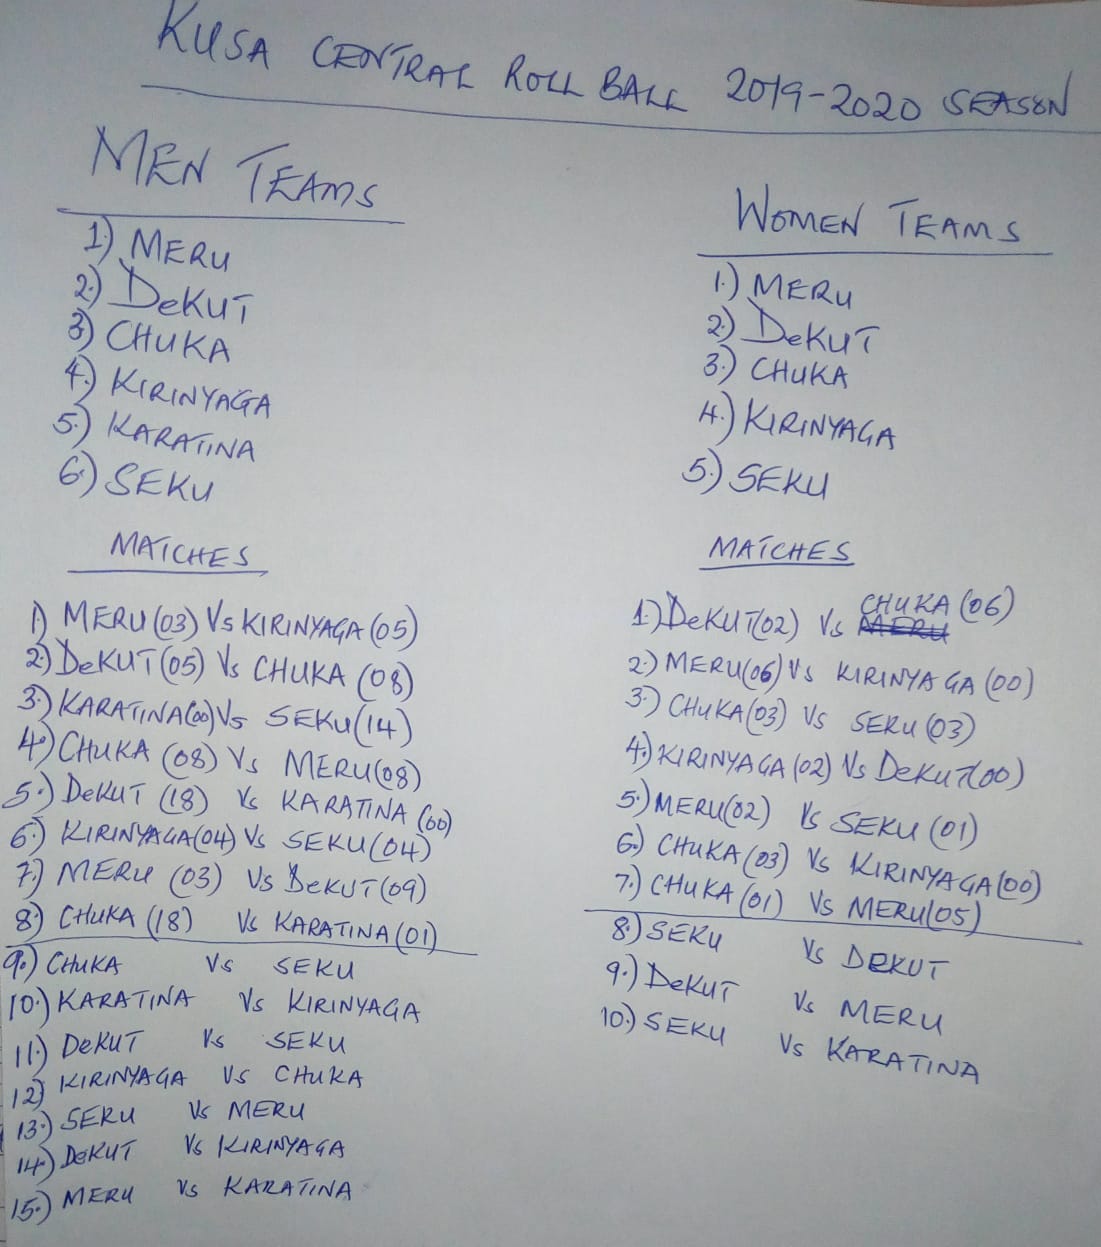 KUSA CENTRAL ROLL BALL 2019-2020 SEASON
MEN TEAMS
1) MERU
2) DeKUT
3) CHUKA
4.) KIRINYAGA
5.) KARATINA
6.) SEKU
MATCHES
1) MERU (03) Vs KIRINYAGA (05)
2) DeKUT (05) Vs CHUKA (08)
3.) KARATINA (00) Vs SEKU (14)
4.) CHUKA (08) Vs MERU (08)
5.) DeKUT (18) Vs KARATINA (00)
6.) KIRINYAGA (04) Vs SEKU (04)
7.) MERU (03) Vs DeKUT (09)
8.) CHUKA (18) Vs KARATINA (01)
9.) CHUKA Vs SEKU
10.) KARATINA Vs KIRINYAGA
11.) DeKUT Vs SEKU
12) KIRINYAGA Vs CHUKA
13.) SEKU Vs MERU
14.) DeKUT Vs KIRINYAGA
15.) MERU Vs KARATINA
WOMEN TEAMS
1.) MERU
2.) DeKUT
3.) CHUKA
4.) KIRINYAGA
5.) SEKU
MATCHES
1.) DeKUT (02) Vs MERU CHUKA (06)
2.) MERU (06) Vs KIRINYAGA (00)
3.) CHUKA (03) Vs SEKU (03)
4.) KIRINYAGA (02) Vs DeKUT (00)
5.) MERU (02) Vs SEKU (01)
6.) CHUKA (03) Vs KIRINYAGA (00)
7.) CHUKA (01) Vs MERU (05)
8.) SEKU Vs DEKUT
9.) DeKUT Vs MERU
10.) SEKU Vs KARATINA